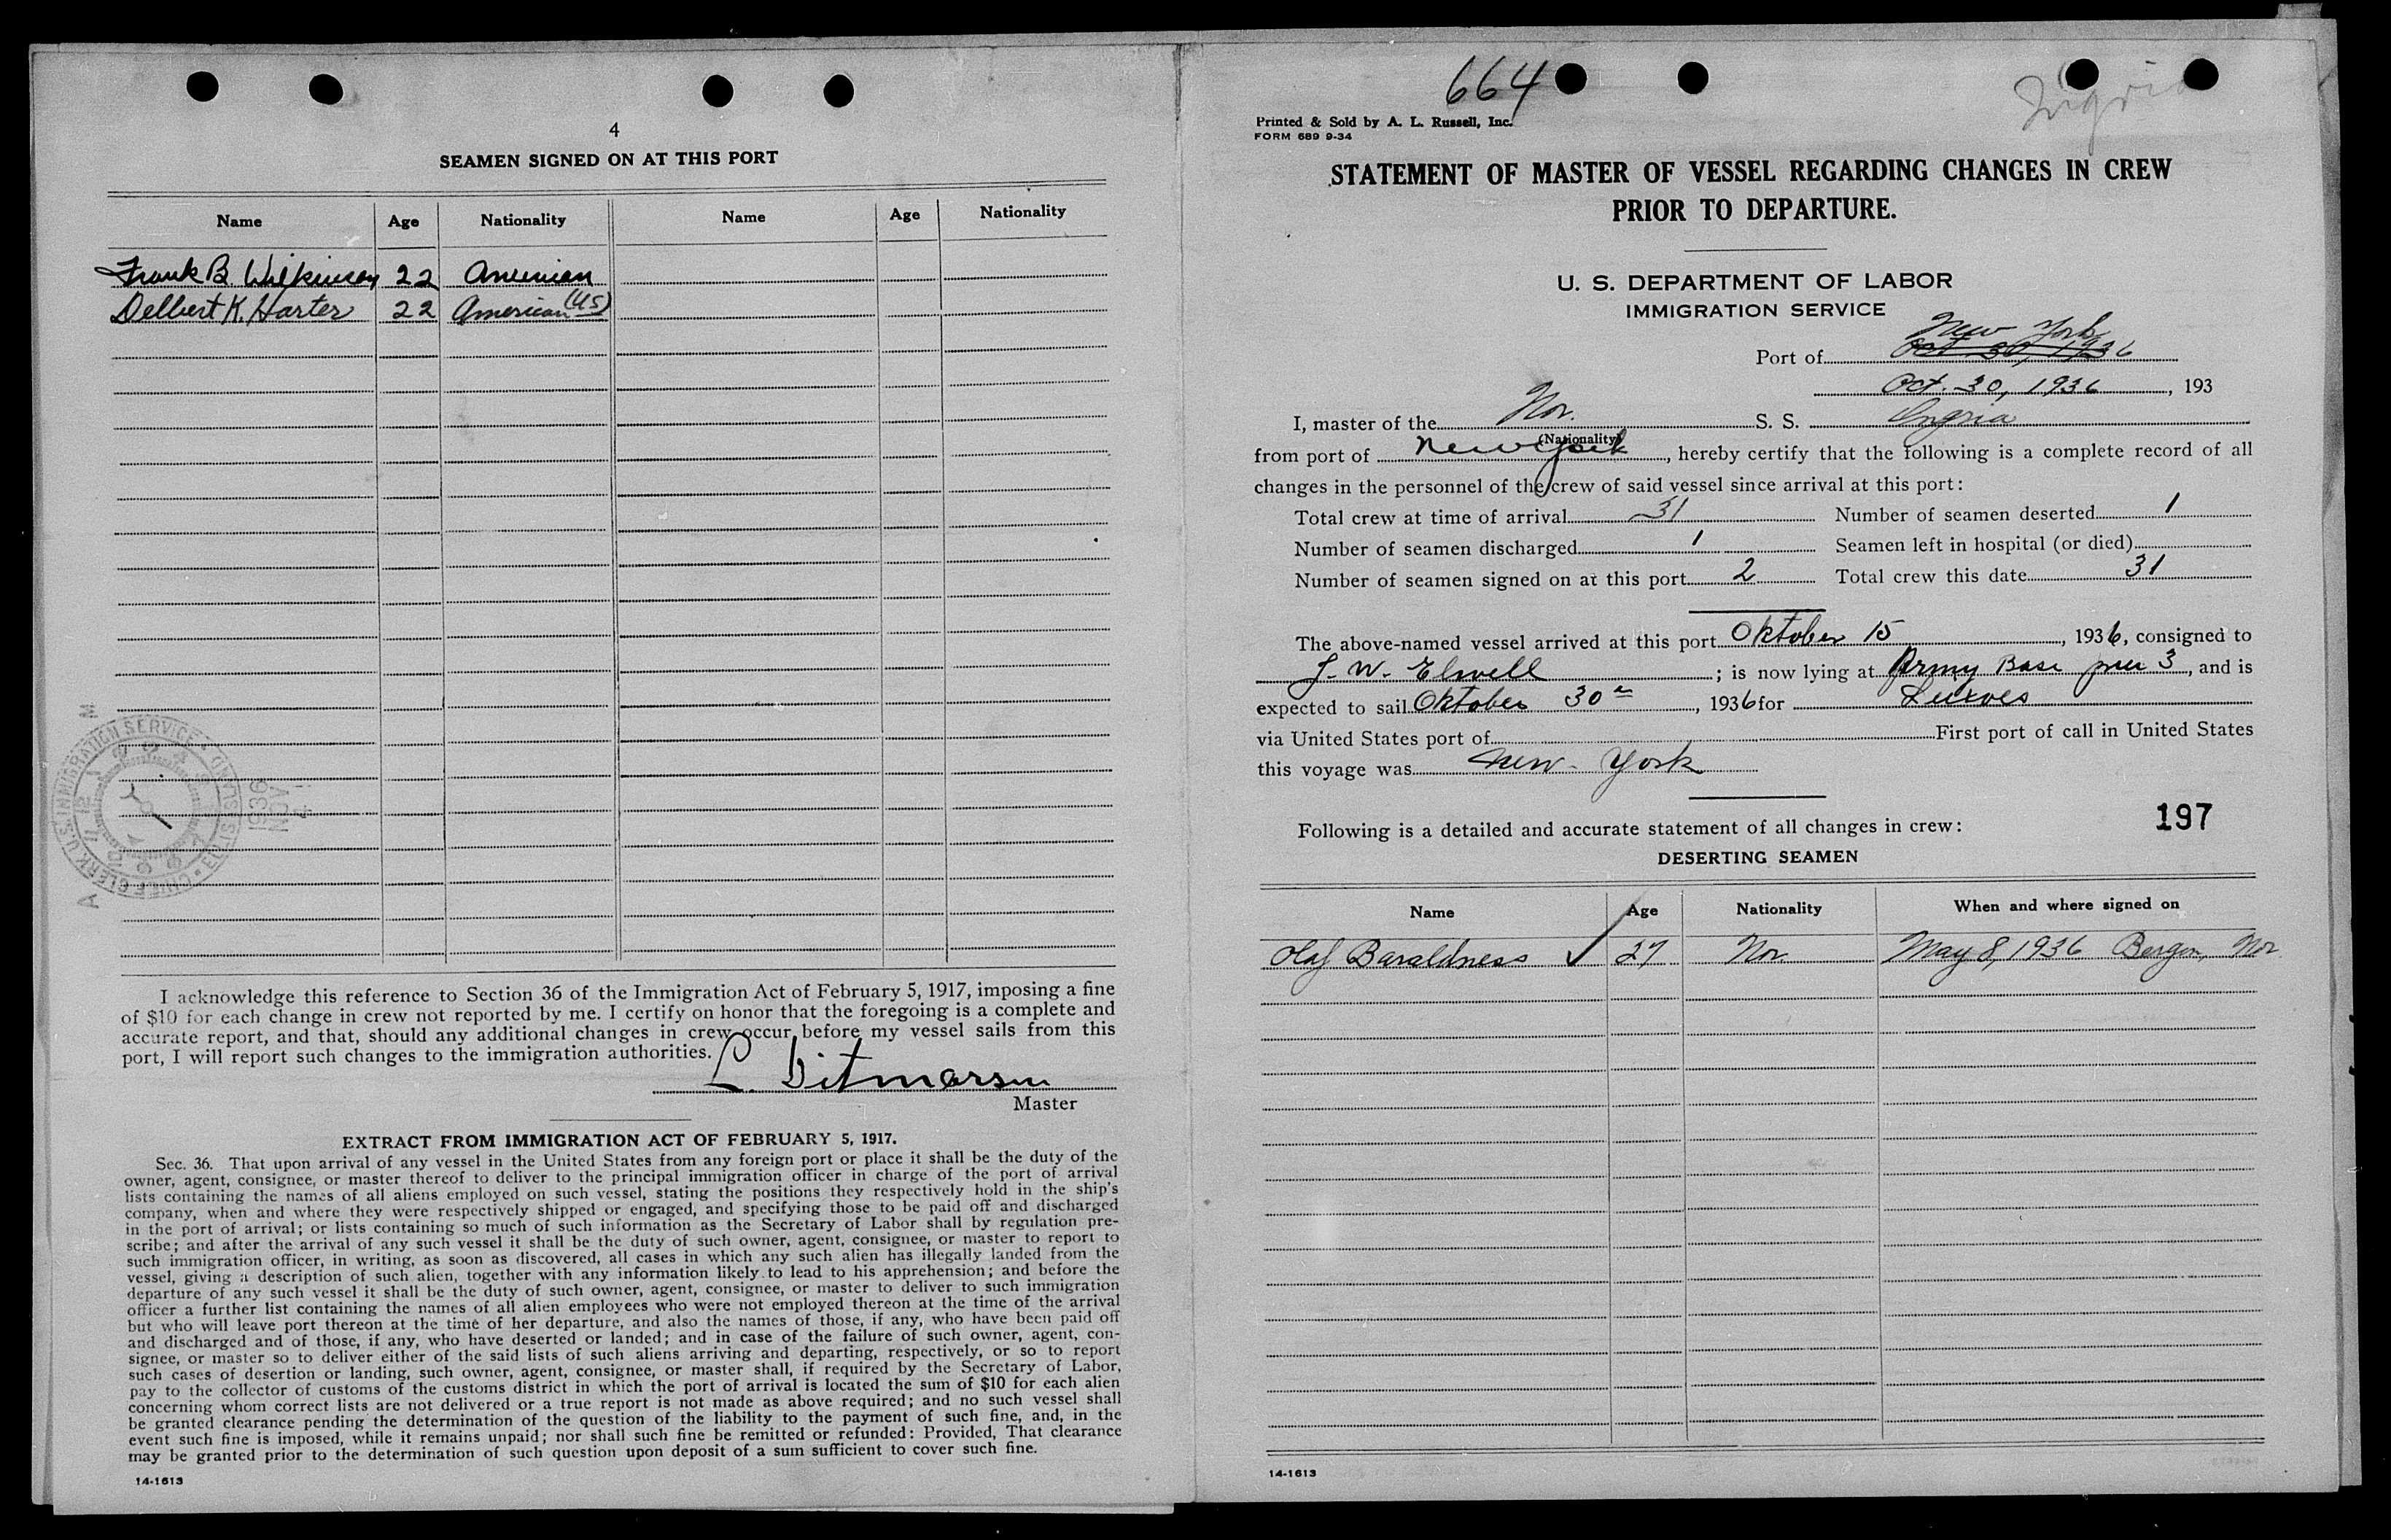 4
SEAMEN SIGNED ON AT THIS PORT
Name Age Nationality Name Age Nationality
Frank B. Wilkinson 22 American
Delbert K. Harter 22 American (US)
CHIEF CLERK U.S. IMMIGRATION SERVICE • ELLIS ISLAND •
1936
NOV
A M
I acknowledge this reference to Section 36 of the Immigration Act of February 5, 1917, imposing a fine
of $10 for each change in crew not reported by me. I certify on honor that the foregoing is a complete and
accurate report, and that, should any additional changes in crew occur before my vessel sails from this
port, I will report such changes to the immigration authorities.
L. Ditmarsen
Master
EXTRACT FROM IMMIGRATION ACT OF FEBRUARY 5, 1917.
Sec. 36. That upon arrival of any vessel in the United States from any foreign port or place it shall be the duty of the
owner, agent, consignee, or master thereof to deliver to the principal immigration officer in charge of the port of arrival
lists containing the names of all aliens employed on such vessel, stating the positions they respectively hold in the ship's
company, when and where they were respectively shipped or engaged, and specifying those to be paid off and discharged
in the port of arrival; or lists containing so much of such information as the Secretary of Labor shall by regulation pre-
scribe; and after the arrival of any such vessel it shall be the duty of such owner, agent, consignee, or master to report to
such immigration officer, in writing, as soon as discovered, all cases in which any such alien has illegally landed from the
vessel, giving a description of such alien, together with any information likely to lead to his apprehension; and before the
departure of any such vessel it shall be the duty of such owner, agent, consignee, or master to deliver to such immigration
officer a further list containing the names of all alien employees who were not employed thereon at the time of the arrival
but who will leave port thereon at the time of her departure, and also the names of those, if any, who have been paid off
and discharged and of those, if any, who have deserted or landed; and in case of the failure of such owner, agent, con-
signee, or master so to deliver either of the said lists of such aliens arriving and departing, respectively, or so to report
such cases of desertion or landing, such owner, agent, consignee, or master shall, if required by the Secretary of Labor,
pay to the collector of customs of the customs district in which the port of arrival is located the sum of $10 for each alien
concerning whom correct lists are not delivered or a true report is not made as above required; and no such vessel shall
be granted clearance pending the determination of the question of the liability to the payment of such fine, and, in the
event such fine is imposed, while it remains unpaid; nor shall such fine be remitted or refunded: Provided, That clearance
may be granted prior to the determination of such question upon deposit of a sum sufficient to cover such fine.
14-1613
664
Ingria
Printed & Sold by A. L. Russell, Inc.
FORM 689 9-34
STATEMENT OF MASTER OF VESSEL REGARDING CHANGES IN CREW
PRIOR TO DEPARTURE.
U. S. DEPARTMENT OF LABOR
IMMIGRATION SERVICE
New York
Port of Oct 30, 1936
Oct. 30, 1936, 193
I, master of the Nor. S. S. Ingria
(Nationality)
from port of New York, hereby certify that the following is a complete record of all
changes in the personnel of the crew of said vessel since arrival at this port:
Total crew at time of arrival 31 Number of seamen deserted 1
Number of seamen discharged 1 Seamen left in hospital (or died)
Number of seamen signed on at this port 2 Total crew this date 31
The above-named vessel arrived at this port Oktober 15, 1936, consigned to
J. W. Elwell; is now lying at Army Base pier 3, and is
expected to sail Oktober 30, 1936 for
via United States port of First port of call in United States
this voyage was New-York
Following is a detailed and accurate statement of all changes in crew: 197
DESERTING SEAMEN
Name Age Nationality When and where signed on
Olaf Baraldness ✓ 27 Nor. May 8, 1936 Bergen, Nor.
14-1613